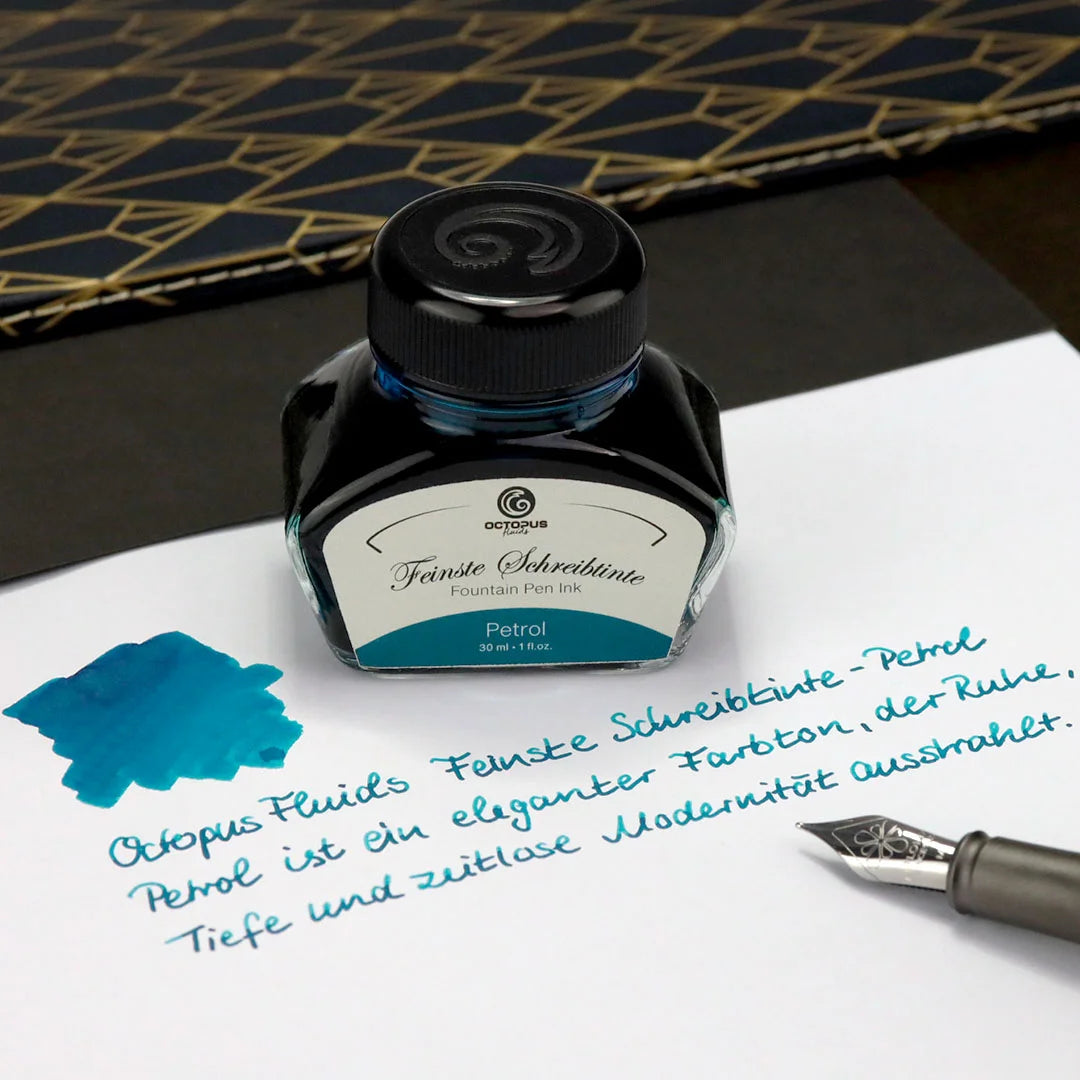 OCTOPUS
fluids
Feinste Schreibtinte
Fountain Pen Ink
Petrol
30 ml • 1 fl.oz.
Octopus Fluids Feinste Schreibtinte - Petrol
Petrol ist ein eleganter Farbton, der Ruhe,
Tiefe und zeitlose Modernität ausstrahlt.